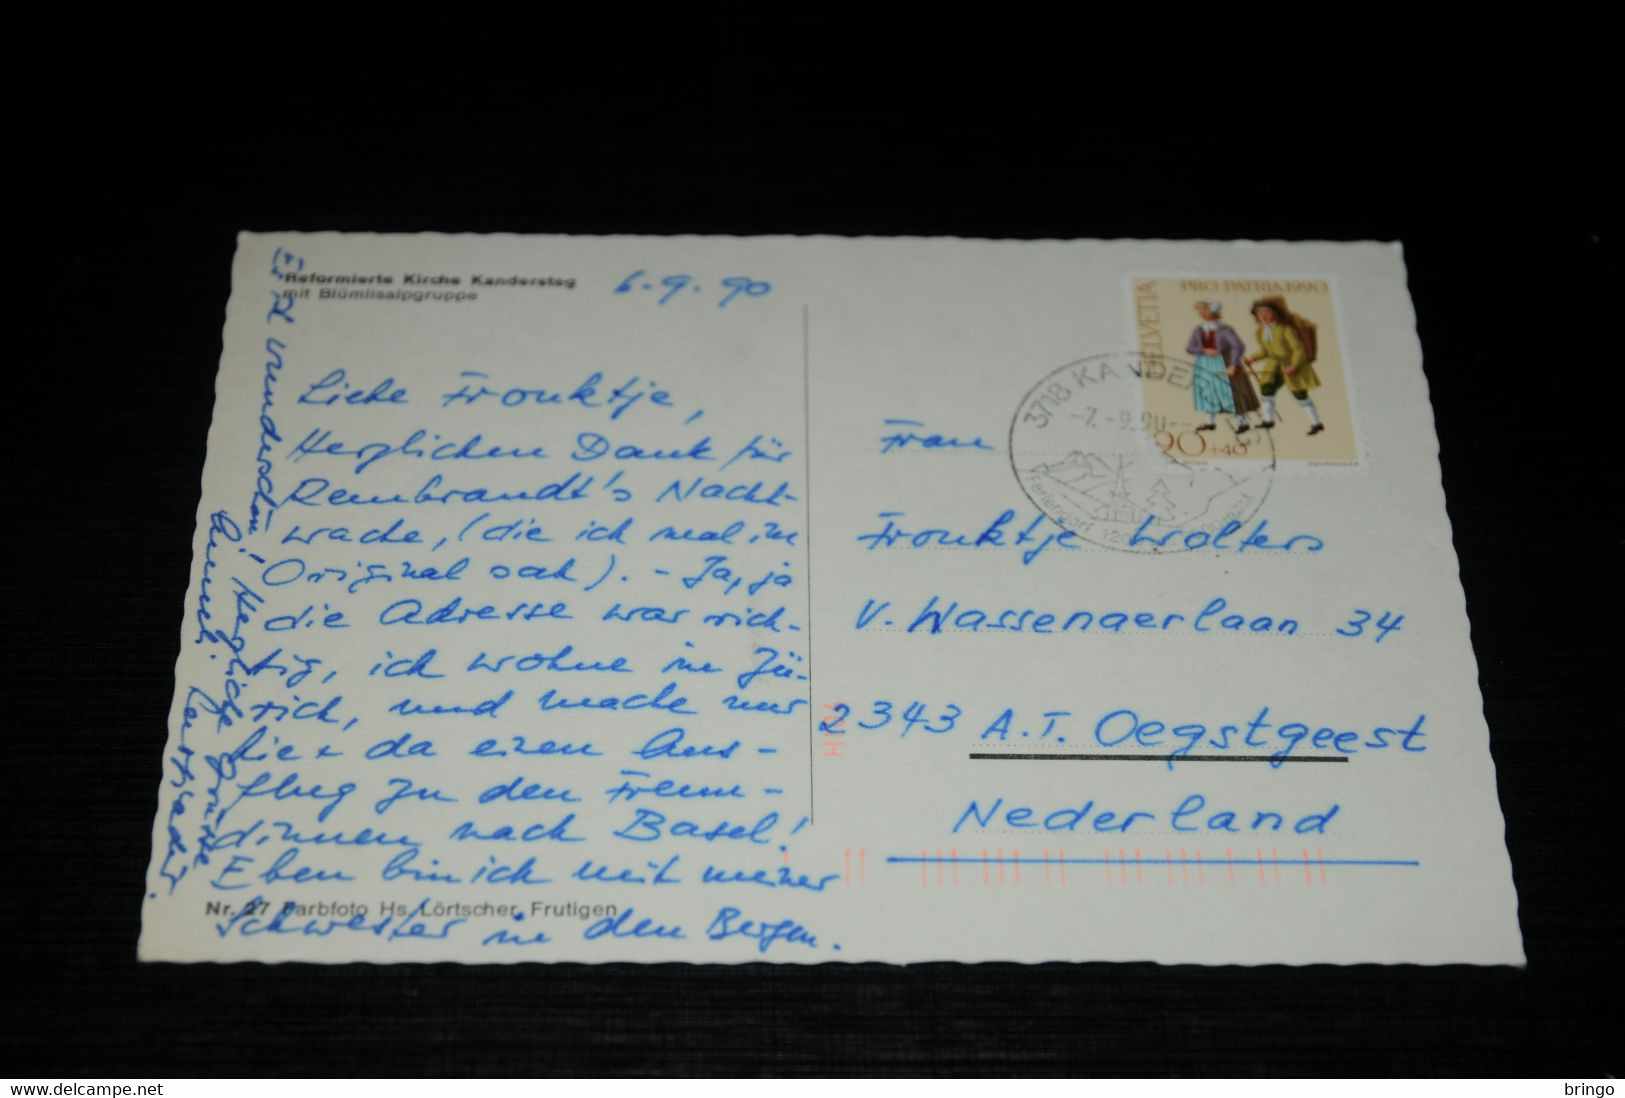 Reformierte Kirche Kandersteg
mit Blümlisalpgruppe
6.9.90
Liebe Frouktje,
Herzlichen Dank für
Rembrandt's Nacht-
wache, (die ich mal im
Original sah). - Ja, ja
die Adresse war rich-
tig, ich wohne in Zü-
rich, und mache nur
hie + da einen Aus-
flug zu den Freun-
dinnen nach Basel!
Eben bin ich mit meiner
Schwester in den Bergen.
Es ist wunderschön! Herzliche Grüsse
Nr. 27 Farbfoto Hs. Lörtscher, Frutigen
HELVETIA
PRO PATRIA 1990
90+40
3718 KANDERSTEG
-7.-9.90--
Feriendorf 1200
Frau
Frouktje Wolters
V. Wassenaerlaan 34
2343 A.T. Oegstgeest
Nederland
bringo